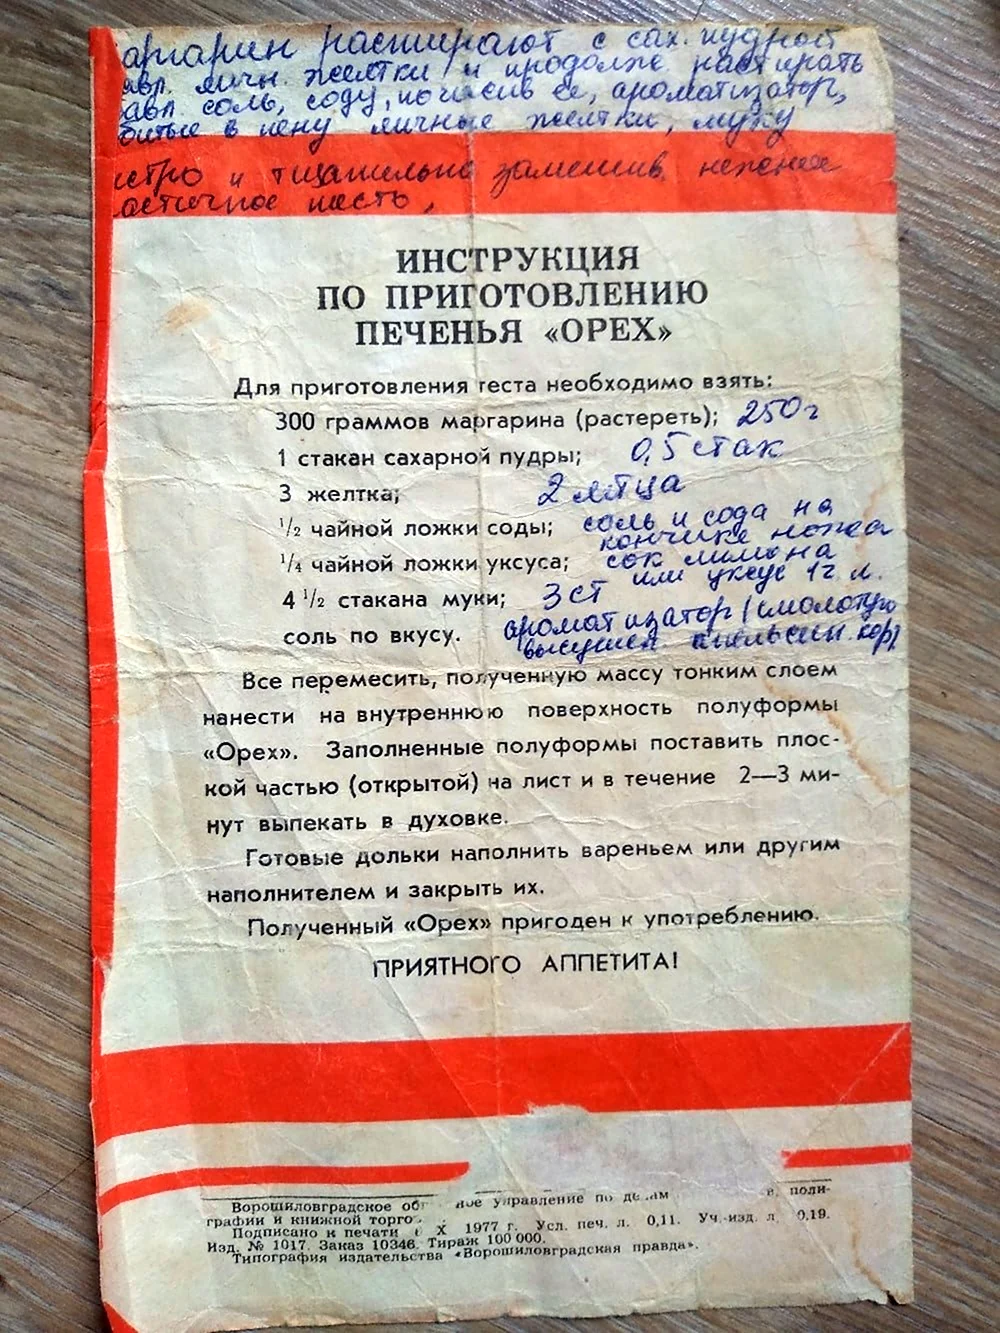 аргарин растирают с сах. пудрой
авл. яичн. желтки и продолж растирать
авл соль, соду, погасив ее, ароматизатор,
битые в пену яичные желтки, муку
стро и тщательно замешив нежное
астичное тесто,
ИНСТРУКЦИЯ
ПО ПРИГОТОВЛЕНИЮ
ПЕЧЕНЬЯ «ОРЕХ»
Для приготовления теста необходимо взять:
300 граммов маргарина (растереть); 250 г
1 стакан сахарной пудры; 0,5 стак
3 желтка; 2 яйца
1/2 чайной ложки соды; соль и сода на
кончике ножа
1/4 чайной ложки уксуса; сок лимона
или уксус 1 ч. л.
4 1/2 стакана муки; 3 ст
соль по вкусу. ароматизатор (смолотую
высушен. апельсин. кор
Все перемесить, полученную массу тонким слоем
нанести на внутреннюю поверхность полуформы
«Орех». Заполненные полуформы поставить плос-
кой частью (открытой) на лист и в течение 2—3 ми-
нут выпекать в духовке.
Готовые дольки наполнить вареньем или другим
наполнителем и закрыть их.
Полученный «Орех» пригоден к употреблению.
ПРИЯТНОГО АППЕТИТА!
Ворошиловградское об ное управление по делам поли-
графии и книжной торго
Подписано к печати X 1977 г. Усл. печ. л. 0,11. Уч.-изд. л. 0,19.
Изд. № 1017. Заказ 10346. Тираж 100 000.
Типография издательства «Ворошиловградская правда».